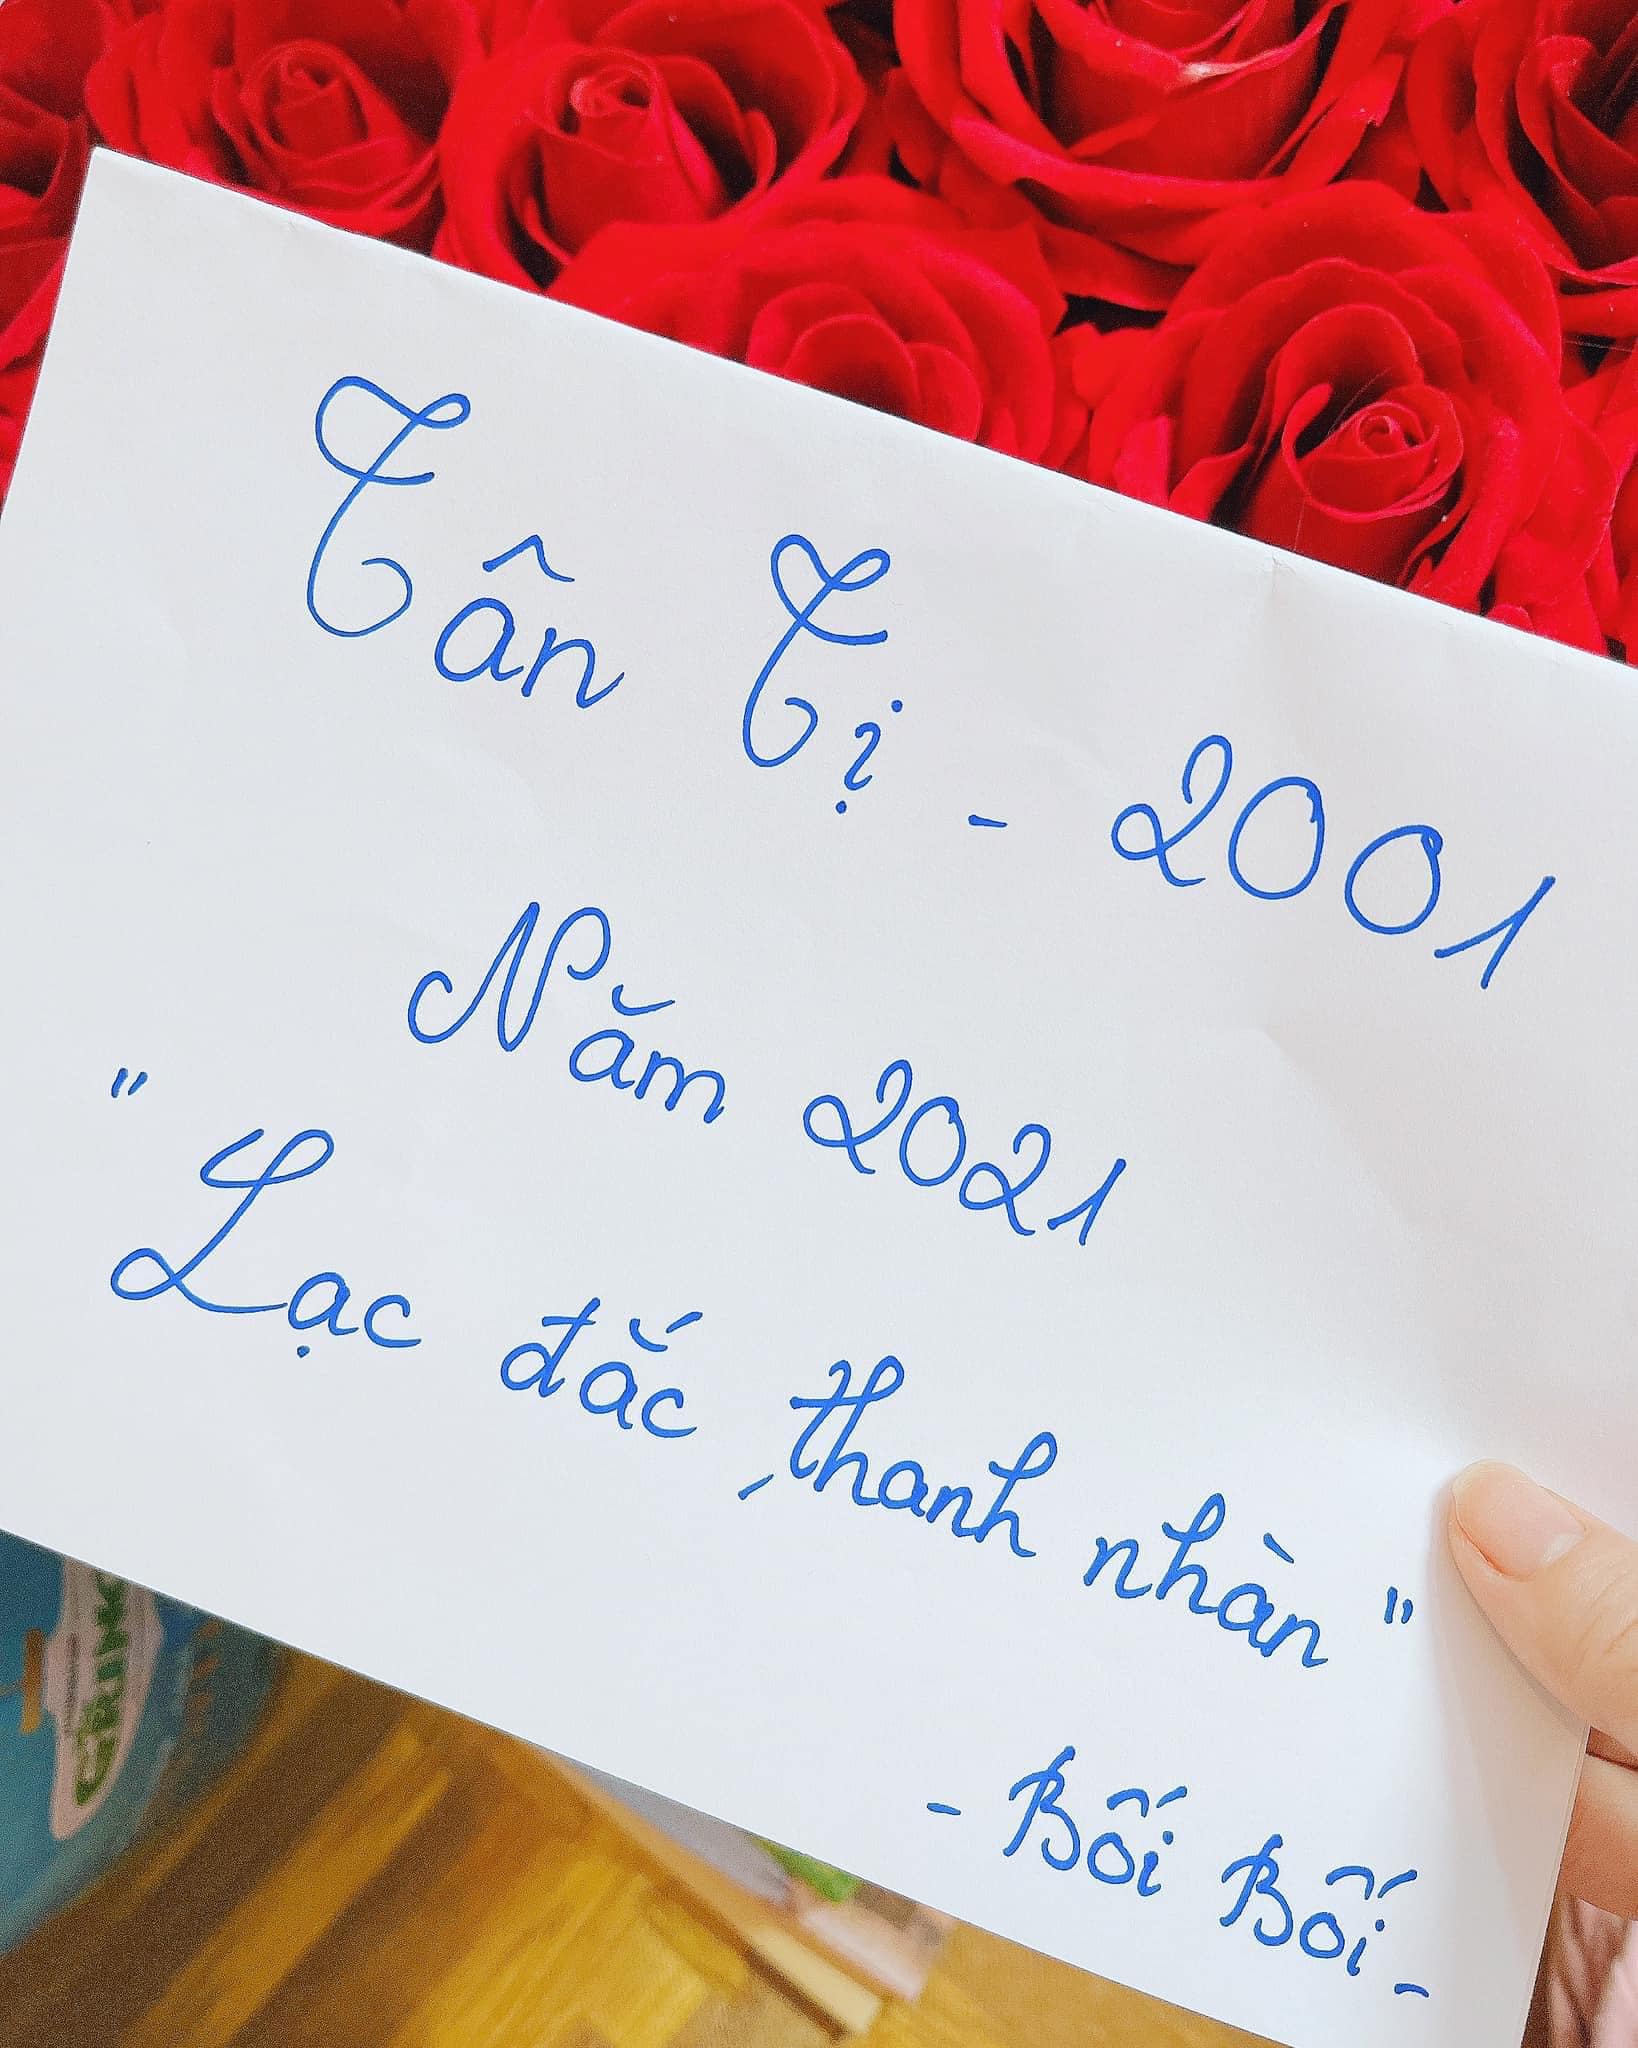 Tân Tị - 2001
Năm 2021
" Lạc đắc, thanh nhàn "
- Bối Bối -